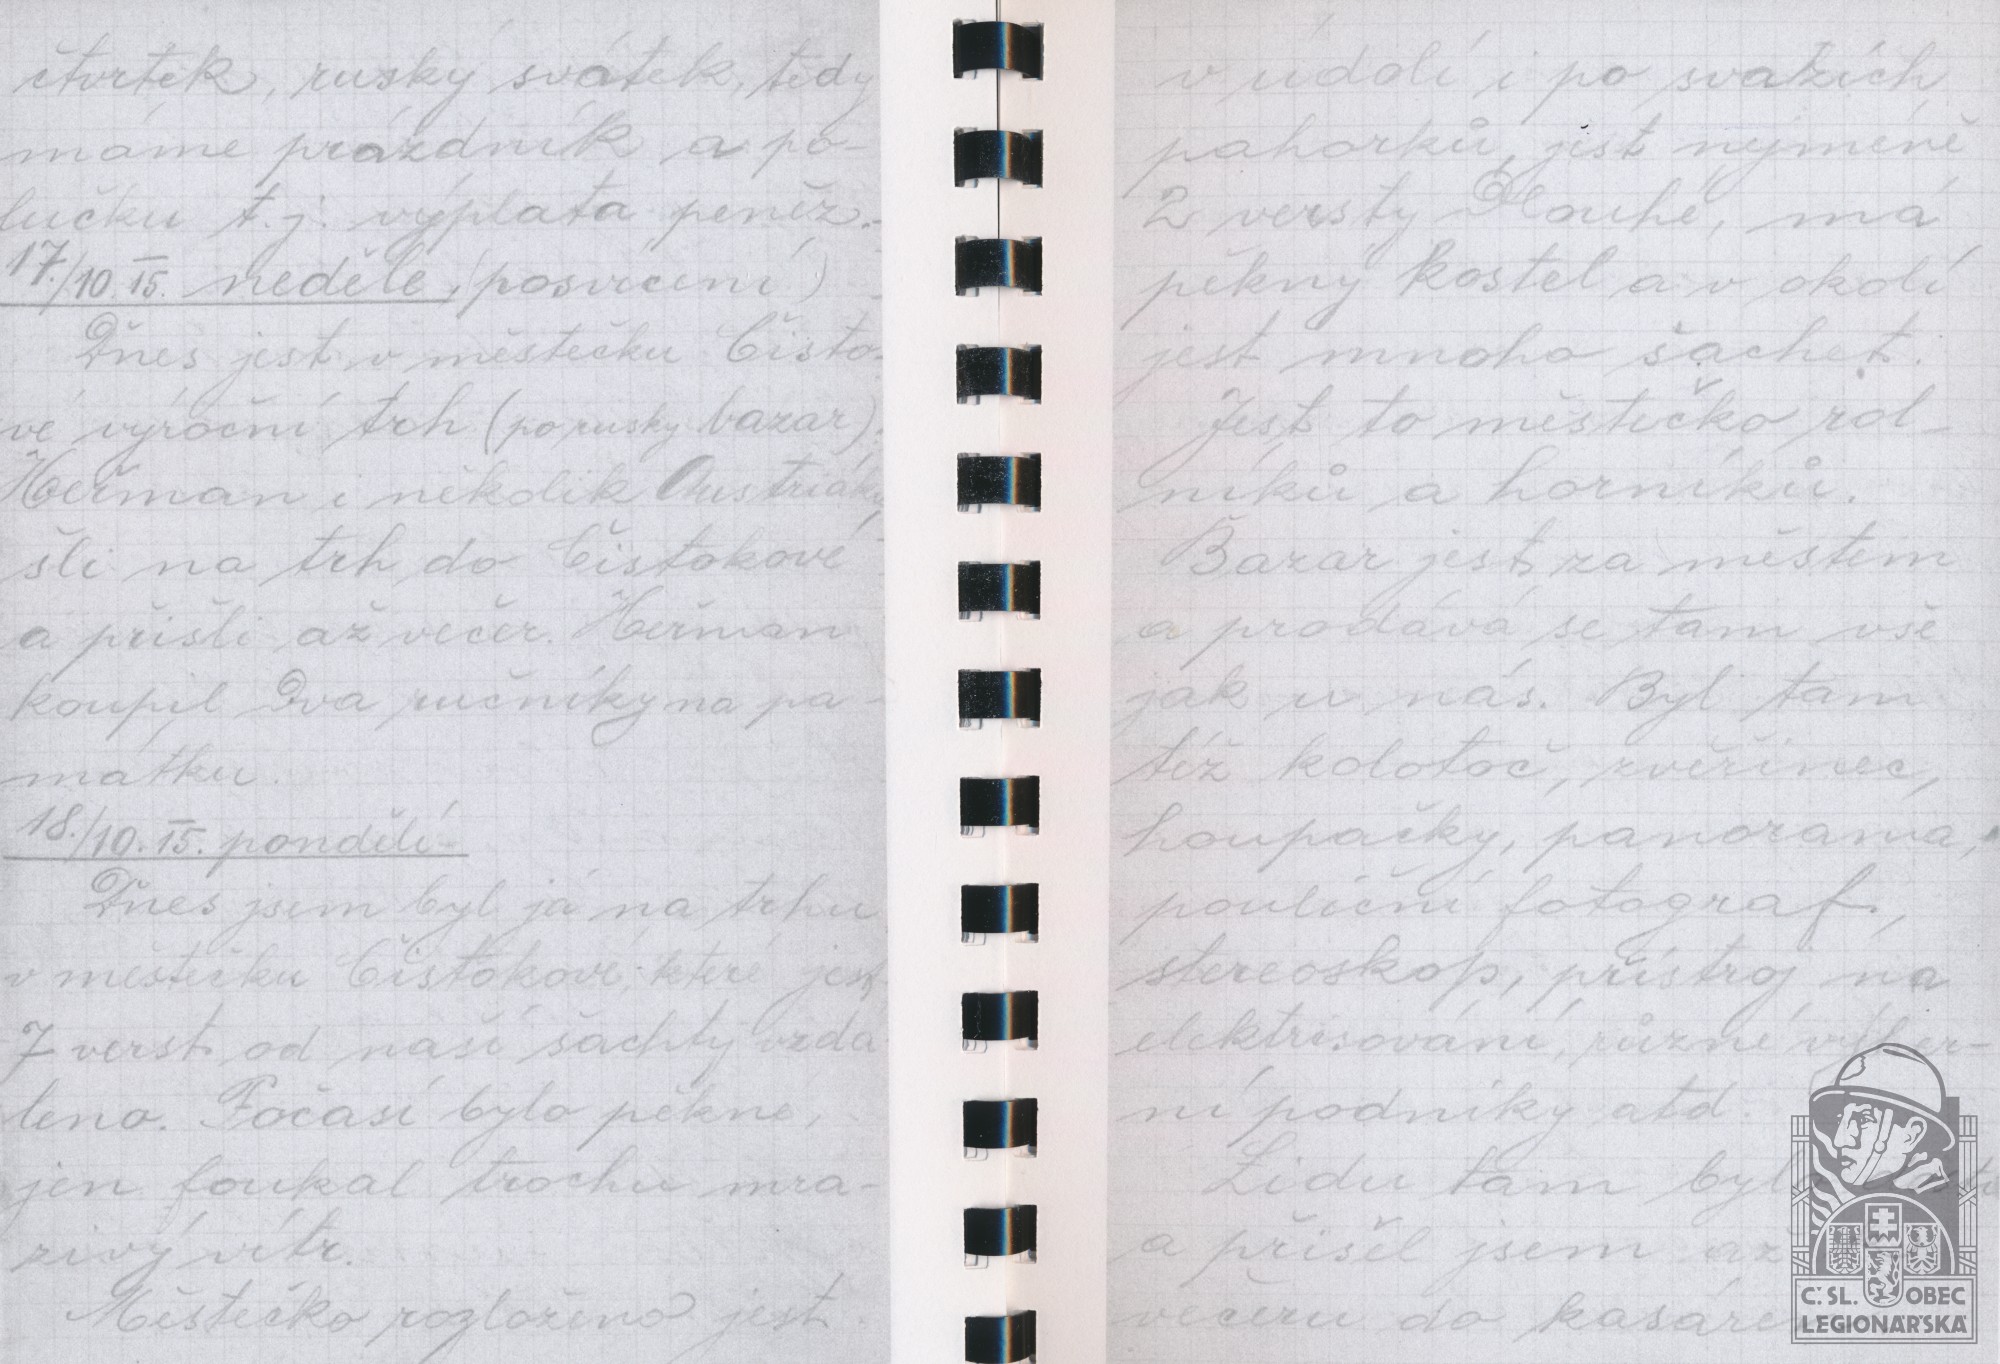 čtvrtek, ruský svátek, tedy
máme prázdník a po-
lučku t.j. výplata peněz.
17./10. 15. neděle, (posvícení)
Dnes jest v městečku Čisto-
vé výroční trh (po rusky bazar).
Heřman i několik Austriáků
šli na trh do Čistokové
a přišli až večer. Heřman
koupil dva ručníky na pa-
mátku.
18./10. 15. pondělí
Dnes jsem byl já na trhu
v městečku Čistokové, které jest
7 verst od naší šachty vzdá
leno. Počasí bylo pěkné,
jen foukal trochu mra-
zivý vítr.
Městečko rozloženo jest
v údolí i po svazích
pahorků, jest nejméně
2 versty dlouhé, má
pěkný kostel a v okolí
jest mnoho šachet.
Jest to městečko rol-
níků a horníků.
Bazar jest za městem
a prodává se tam vše
jak u nás. Byl tam
též kolotoč, zvěřinec,
houpačky, panorama,
pouliční fotograf,
stereoskop, přístroj na
elektrisování, různé
ní podniky atd.
Lidu tam bylo
a přišel jsem až
večeru do kasáren
Č. SL. OBEC
LEGIONÁŘSKÁ